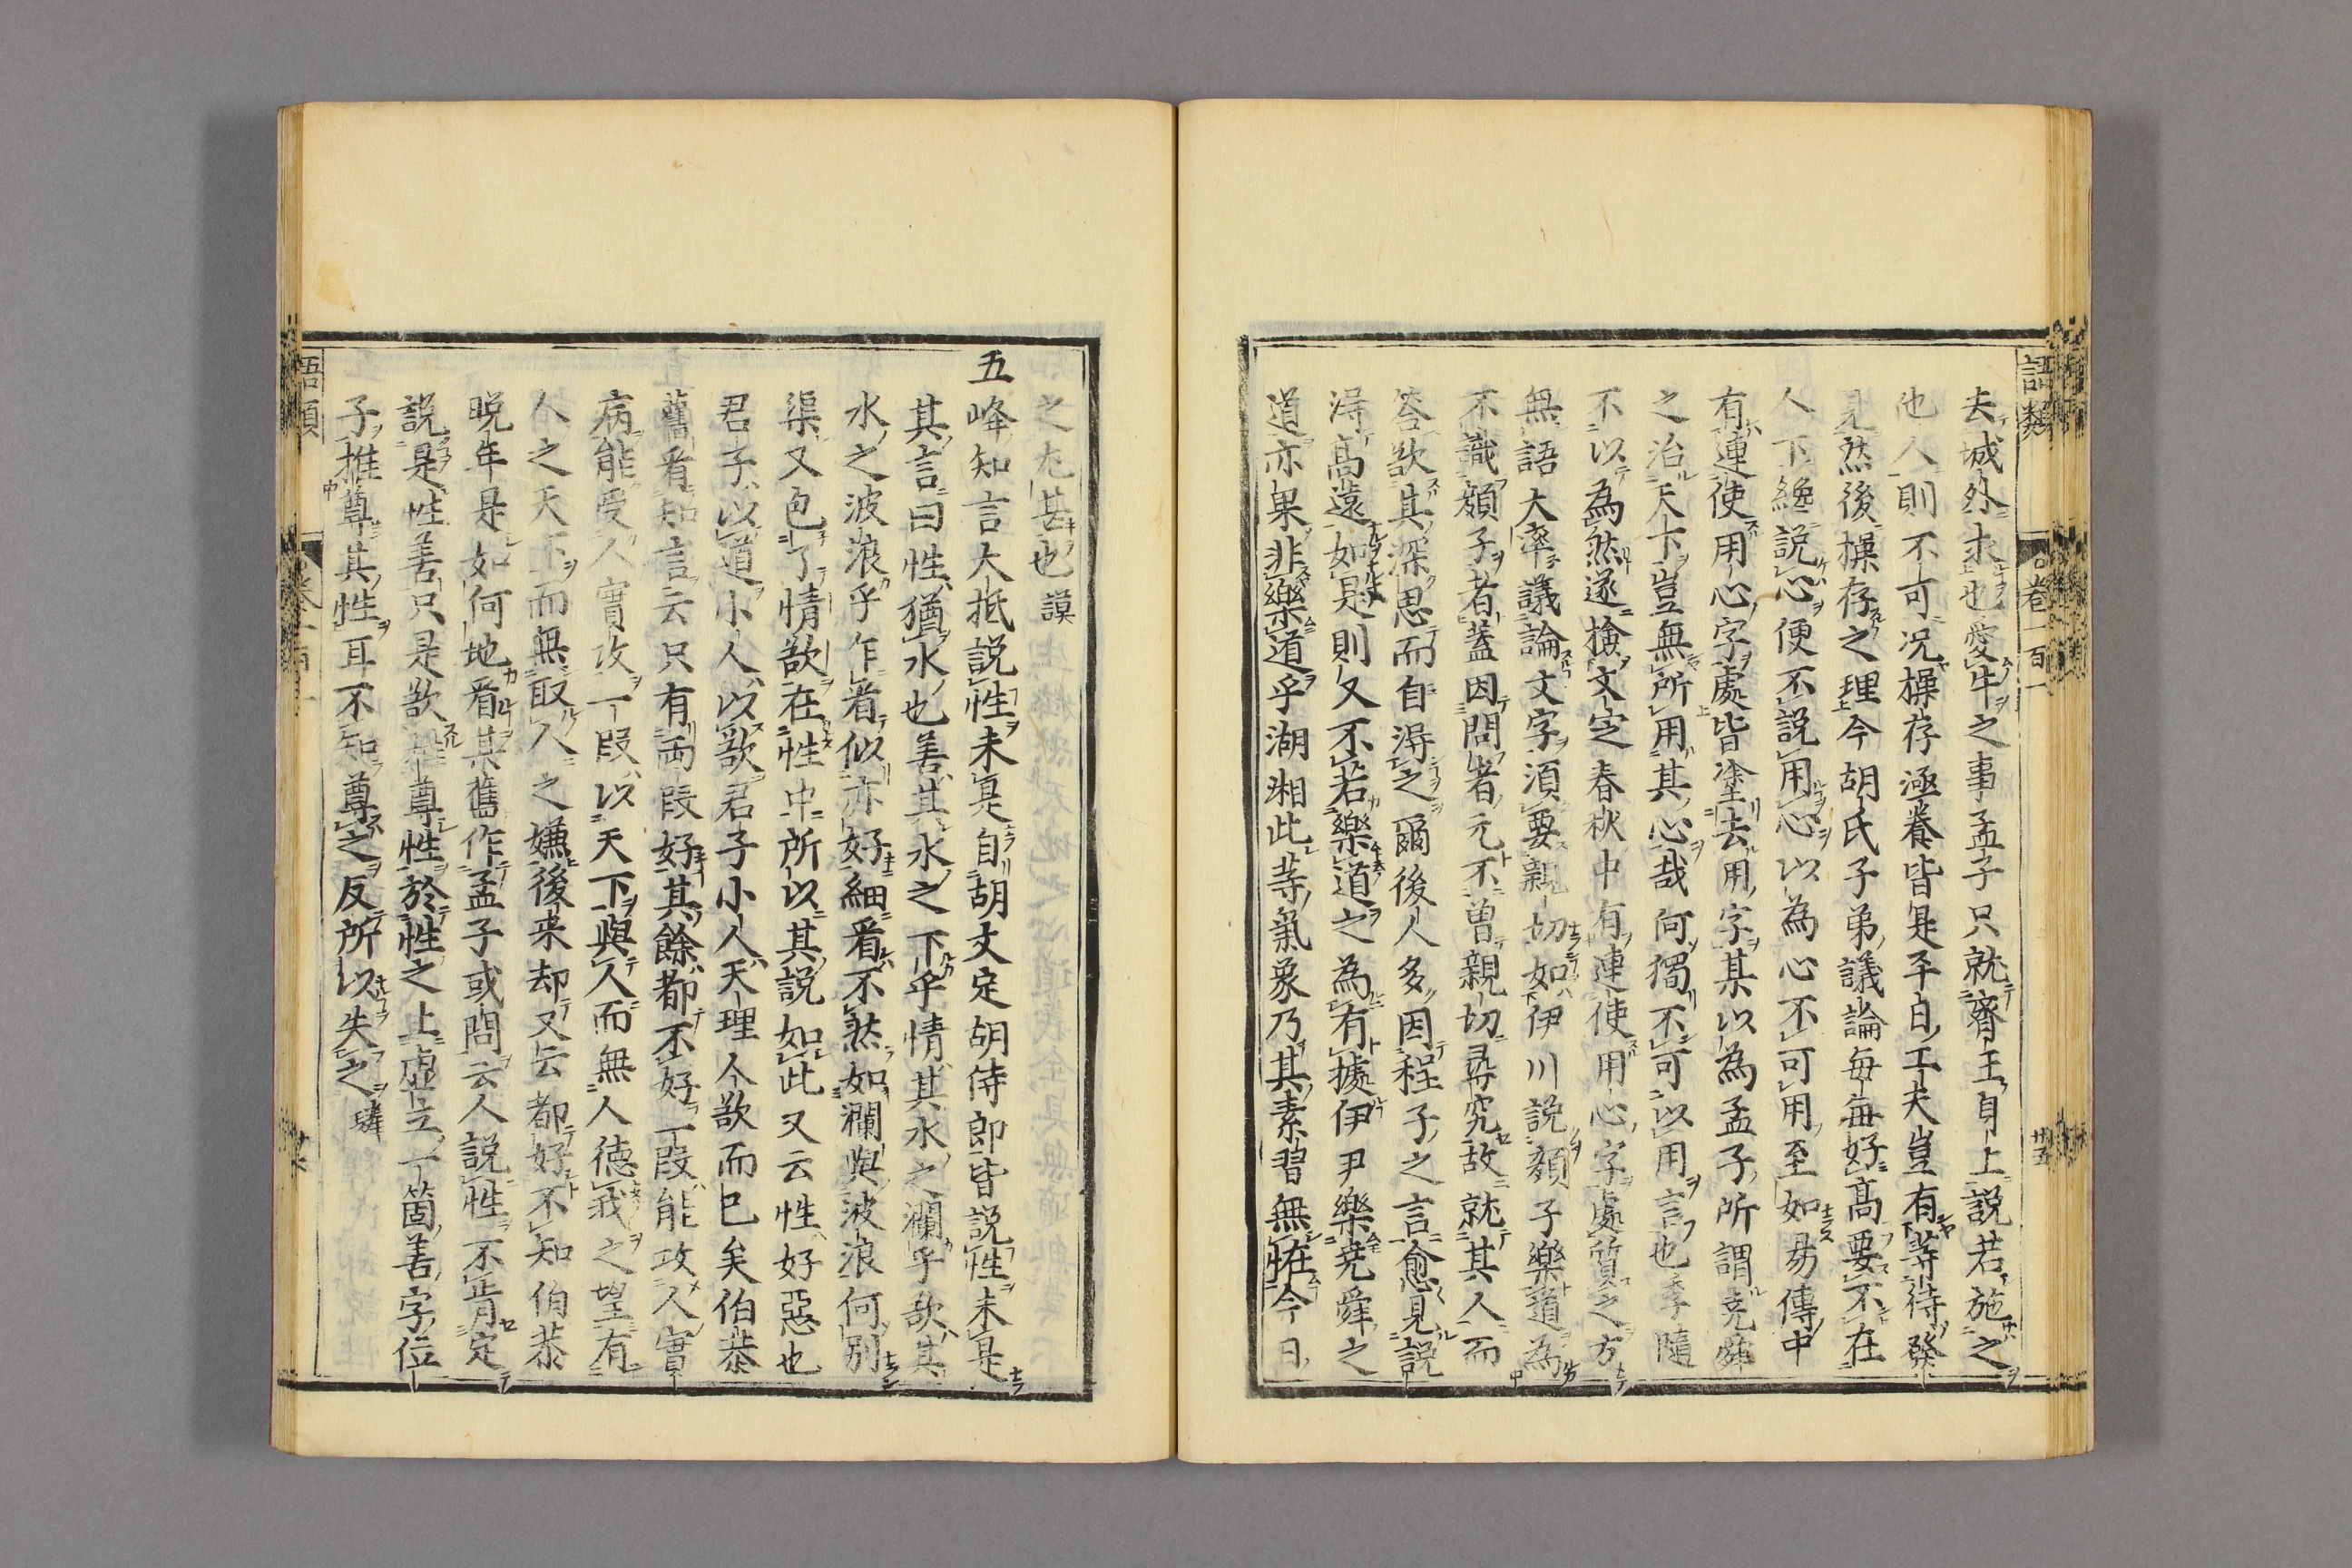 語類　卷一百一　廿五
夫城外求也愛牛之事孟子只就齊王身上說若施之
他人則不可況操存涵養皆是平日工夫豈有等待發
見然後操存之理今胡氏子弟議論每每好高要不在
人下纔說心便不說用心以為心不可用至如易傳中
有連使用心字處皆塗去用字某以為孟子所謂堯舜
之治天下豈無所用其心哉何獨不可以用言也季隨
不以為然遂檢文定春秋中有連使用心字處質之方
無語大率議論文字須要親切如伊川說顏子樂道為
不識顏子者蓋因問者元不曾親切尋究故就其人而
答欲其深思而自得之爾後人多因程子之言愈見說
得高遠如是則又不若樂道之為有據伊尹樂堯舜之
道亦果非樂道乎湖湘此等氣象乃其素習無怪今日
之尤甚也謨
五峰知言大抵說性未是自胡文定胡侍郎皆說性未是
其言曰性猶水也善其水之下乎情其水之瀾乎欲其
水之波浪乎乍看似亦好細看不然如瀾與波浪何別
渠又包了情欲在性中所以其說如此又云性好惡也
君子以道小人以欲君子小人天理人欲而已矣伯恭
舊看知言云只有兩段好其餘都不好一段能攻人實
病能受人實攻一段以天下與人而無人德我之望有
人之天下而無取人之嫌後来却又云都好不知伯恭
晚年是如何地看某舊作孟子或問云人說性不肯定
說是性善只是欲推尊性於性之上虛立一箇善字位
子推尊其性耳不知尊之反所以失之璘
語類　卷一百一　廿六